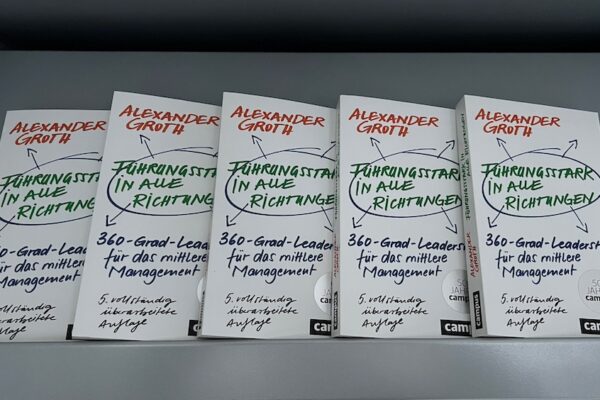 ALEXANDER
GROTH
FÜHRUNGSSTARK
IN ALLE
RICHTUNGEN
360-Grad-Leaders
für das mittlere
Management
5. vollständig
überarbeitete
Auflage
ALEXANDER
GROTH
FÜHRUNGSSTARK
IN ALLE
RICHTUNGEN
360-Grad-Leaders
für das mittlere
Management
5. vollständig
überarbeitete
Auflage
ALEXANDER
GROTH
FÜHRUNGSSTAR
IN ALLE
RICHTUNGEN
360-Grad-Leaders
für das mittlere
Management
5. vollständig
überarbeitete
Auflage
cam
ALEXANDER
GROTH
FÜHRUNGSSTARK
IN ALLE
RICHTUNGEN
360-Grad-Leaders
für das mittlere
Management
5. vollständig
überarbeitete
Auflage
50
JAHRE
campus
campus
ALEXANDER
GROTH
campus
ALEXANDER
GROTH
FÜHRUNGSSTARK
IN ALLE
RICHTUNGEN
360-Grad-Leaderst
für das mittlere
Management
5. vollständig
überarbeitete
Auflage
50
JAHRE
camp
camp